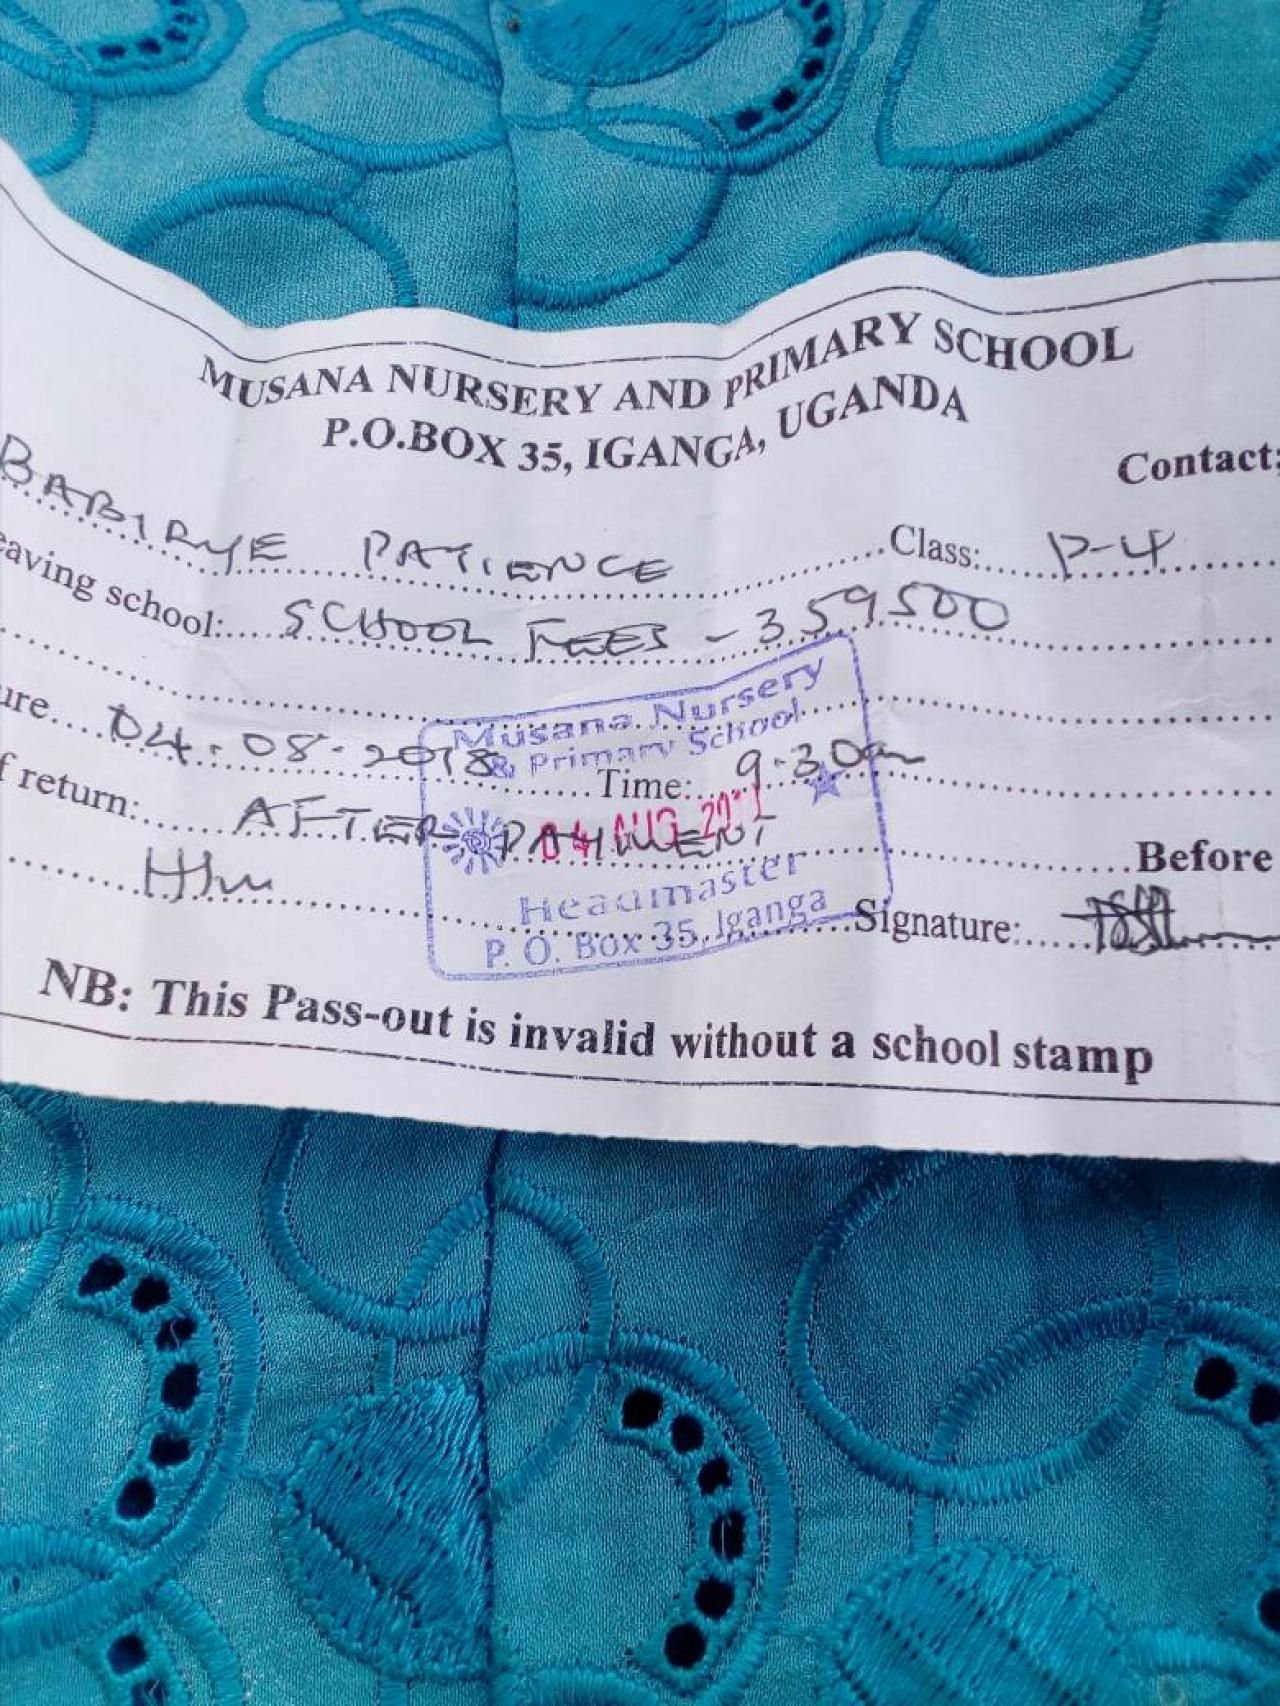 MUSANA NURSERY AND PRIMARY SCHOOL
P.O.BOX 35, IGANGA, UGANDA
Contact:
BABIRYE PATIENCE Class: P-4
eaving school: SCHOOL FEES - 359500
ure 04.08.2018 Time: 9.30am
f return: AFTER PAYMENT
Before
Signature:
Musana Nursery
& Primary School
04 AUG
Headmaster
P. O. Box 35, Iganga
NB: This Pass-out is invalid without a school stamp